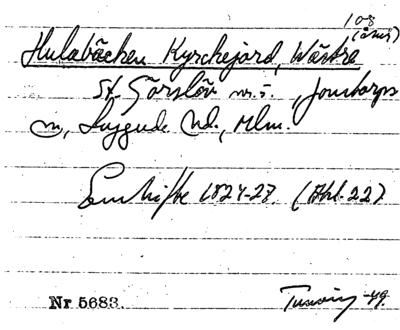 108
(åker)
Hulabäcken Kyrckejord, Wästra
St. Görslöv nr. 5, Jonstorps
sn, Luggude hd., Mlm.
Enskifte 1827-28 (Akt 22)
Nr 5683. -49.